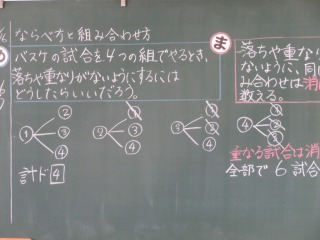 ならべ方と組み合わせ方
め
バスケの試合を4つの組でやるとき、
落ちや重なりがないようにするには
どうしたらいいだろう。
ま
落ちや重な
ないように、同
み合わせは消
数える。
① ② ③ ④
② ① ③ ④
③ ① ② ④
④ ① ② ③
計ド 4
重なる試合は消
全部で6試合